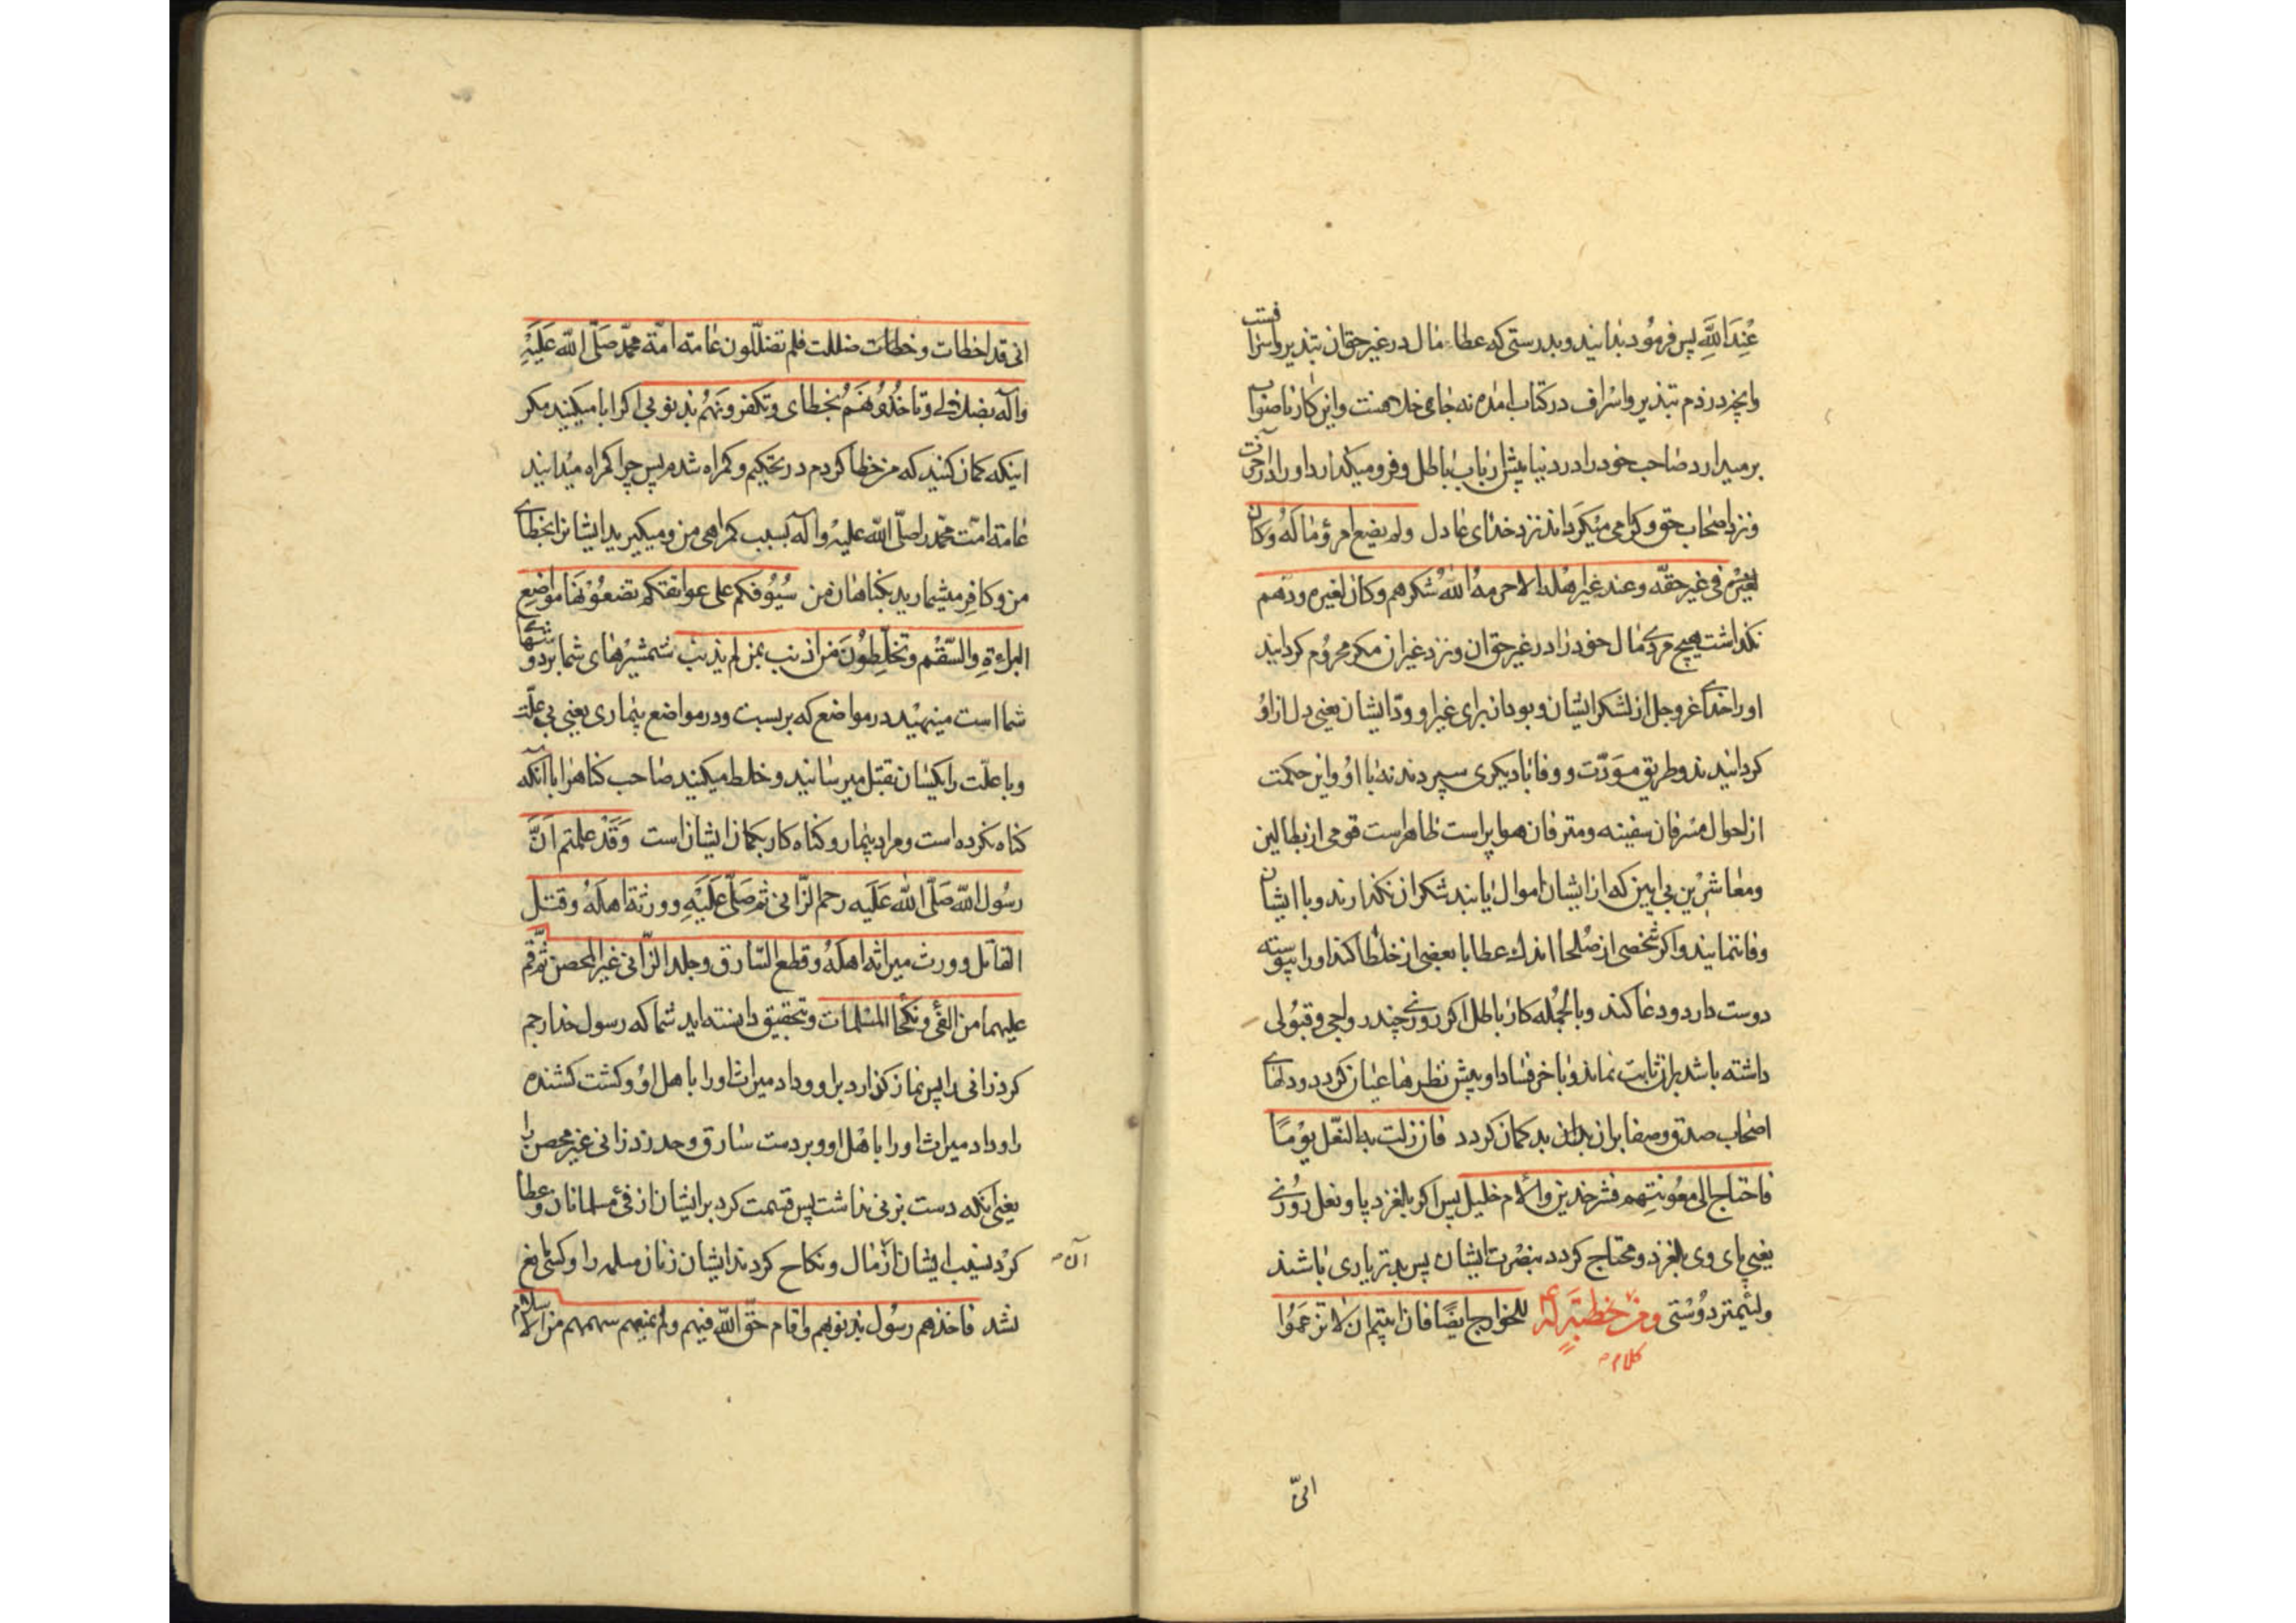 عِندَ اللَّهِ پس فرمود بدانید و بدرستی که عطاء مال در غیر حق ان تبذیر و اسرافست
وانچه در ذم تبذیر و اسراف در کتاب امده نه جای خلا هست و این کار ناصواب
برمیدارد صاحب خود را در دنیا پیش ارباب باطل و فرو میکذارد او را در آخرت
و نزد اصحاب حق و کرامی میکرداند نزد خدای عادل ولم یضع امرؤ ماله و کان
فی غیر حقه و عند غیر اهله الا حرمه الله شکرهم و کان لغیره ودهم
نکذاشت هیچ مردی مال خود را در غیر حق ان و نزد غیر ان مکر محروم کردانید
او را خدای عز و جل از لشکر ایشان و بود ان برای غیر او ودّ ایشان یعنی دل از او
کردانیدند و طریق مودّت و وفا با دیکری سپردند نه با او و این حکمت
از احوال مسرفان سفینه و مترفان هوا پراست ظاهرست قومی از بطالین
و معاشرین بی این که از ایشان اموال یابند شکر ان نکذارند و با ایشان
وفا ننمایند و اکر شخصی از صلحا اندك عطا با بعضی از خلطا کند او را پیوسته
دوست دارد و دعا کند و بالجمله کار باطل اکر روزی چند رواجی و قبولی
داشته باشد بران ثابت نماند و باخر فساد او پیش نظرها عیان کردد و دلهای
اصحاب صدق و صفا بران بدان بد کمان کردد فان زلت به النعل یومًا
فاحتاج الی معونتهم فشر خدین و الأم خلیل پس اکر بلغزد پا و نعل روزی
یعنی پای وی بلغزد و محتاج کردد بنصرت ایشان پس بدتر یاری باشند
و لئیمتر دوستی و من خطبة له للخوارج ایضًا فان ابیتم ان لا تزعموا
کلام
انی
انی قد اخطات و خطات ضللت فلم تضلّلون عامة امّة محمّد صلّی الله علیه
وآله بضلالی و تاخذونهم بخطای و تکفرونهم بذنوبی اکر ابا میکنید مکر
اینکه کمان کنید که من خطا کردم در تحکیم و کمراه شدم پس چرا کمراه میدانید
عامة امّت محمّد را صلّی الله علیه وآله بسبب کمراهی من و میکیرید ایشان را بخطای
من و کافر میشمارید بکناهان من سیوفکم علی عواتقکم تضعونها مواضع
البراءةِ والسّقم و تخلّطون من اذنب بمن لم یذنب شمشیرهای شما بر دوشهای
شما است مینهید در مواضع که بر بست و در مواضع بیماری یعنی بی علّت
و با علّت را یکسان بقتل میرسانید و خلط میکنید صاحب کناهرا با آنکه
کناه نکرده است و مراد بیمار و کناه کار بکمان ایشان است وَقَدْ علمتم اَنَّ
رسول الله صلّی الله علیه رجم الزّانی ثم صلّی علیه و ورثه اهله و قتل
القاتل و ورث میراثه اهله و قطع السّارق و جلد الزّانی غیر المحصن ثم قسم
علیهما من الفیٔ و نکحا المسلمات و بتحقیق دانسته اید شما که رسول خدا رجم
کرد زانی را پس نماز کزارد بر او و داد میراث او را باهل او و کشت کشنده
را و داد میراث او را باهل او و برد دست سارق و حد زد زانی غیر محصن را
یعنی آنکه دست بزنی نداشت پس قسمت کرد بر ایشان از فیٔ مسلمانان و عطا
کرد نصیب ایشان از مال و نکاح کردند ایشان زنان مسلمه را و کسی مانع
آن
نشد فاخذهم رسول بذنوبهم و اقام حقّ الله فیهم ولم یمنعهم سهمهم من الاسلام